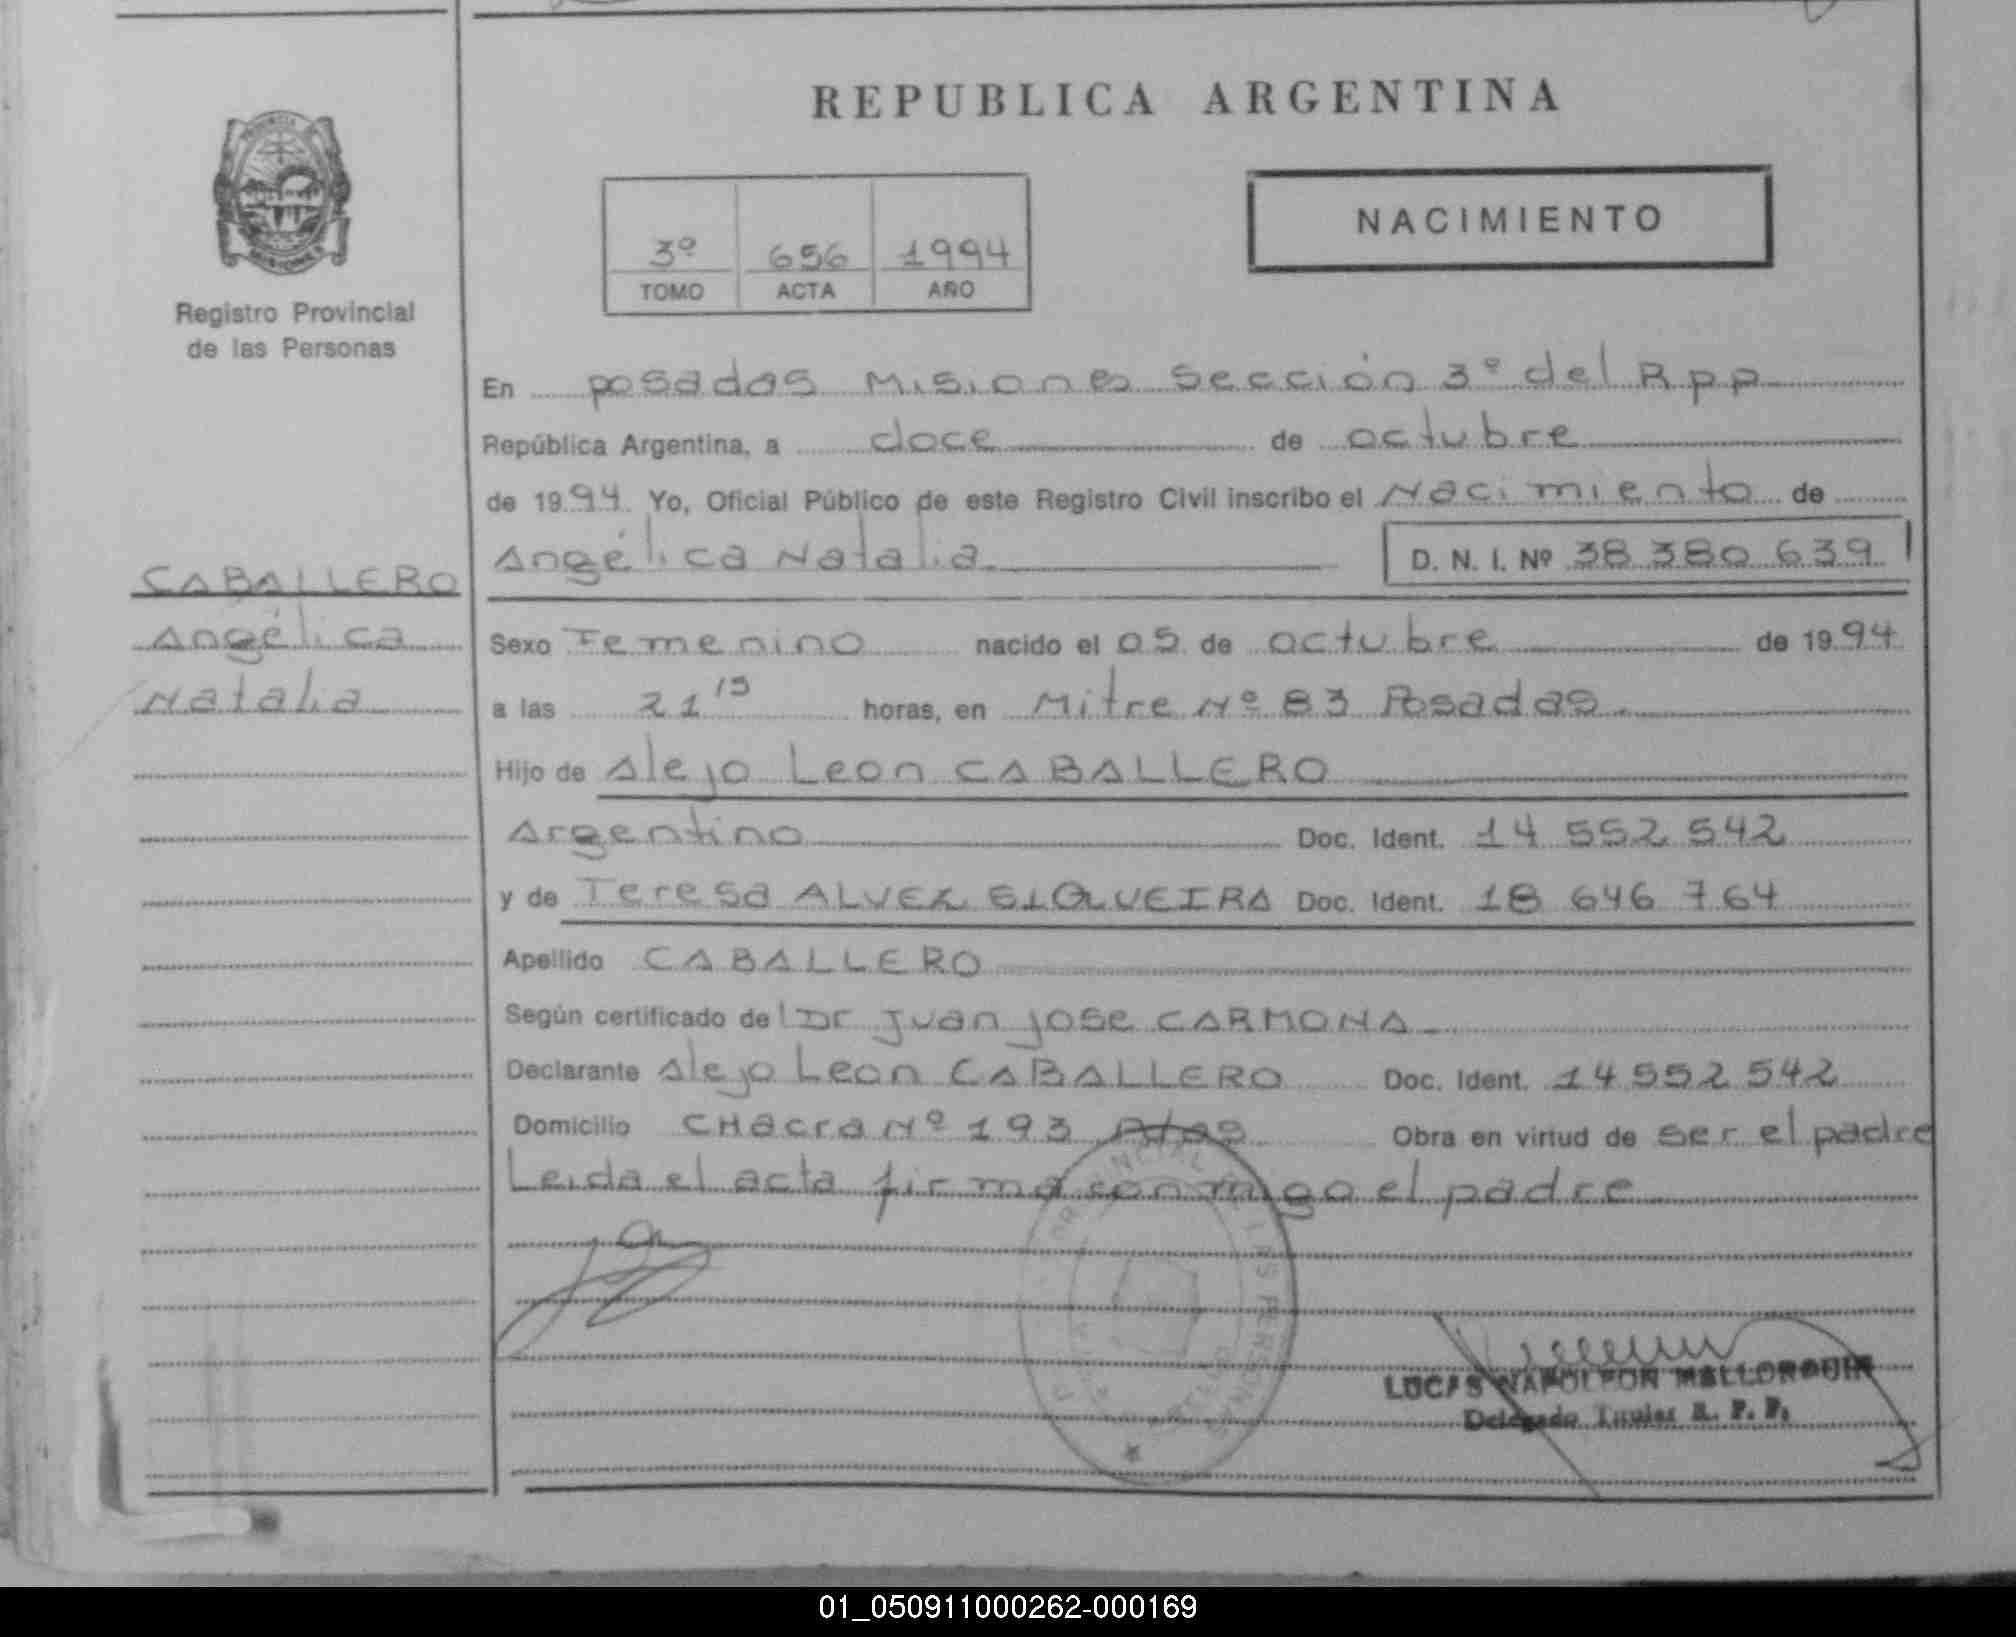 REPUBLICA ARGENTINA
NACIMIENTO
3º 656 1994
TOMO ACTA AÑO
Registro Provincial
de las Personas
En posadas Misiones sección 3º del Rpp
República Argentina, a doce de octubre
de 1994 Yo, Oficial Público de este Registro Civil inscribo el Nacimiento de
Angélica Natalia D. N. I. Nº 38 380 639
CABALLERO
Angélica
Natalia
Sexo Femenino nacido el 05 de octubre de 1994
a las 21 15 horas, en Mitre Nº 83 Posadas
Hijo de Alejo Leon CABALLERO
Argentino Doc. Ident. 14 552 542
y de Teresa ALVEZ Doc. Ident. 18 646 764
Apellido CABALLERO
Según certificado de Dr Juan Jose CARMONA
Declarante Alejo Leon CABALLERO Doc. Ident. 14 552 542
Domicilio CHacra Nº 193 Pdas Obra en virtud de ser el padre
Leida el acta firma conmigo el padre
LUCAS NAPOLEON MALLORQUIN
Delegado Titular R. P. P.
01_050911000262-000169